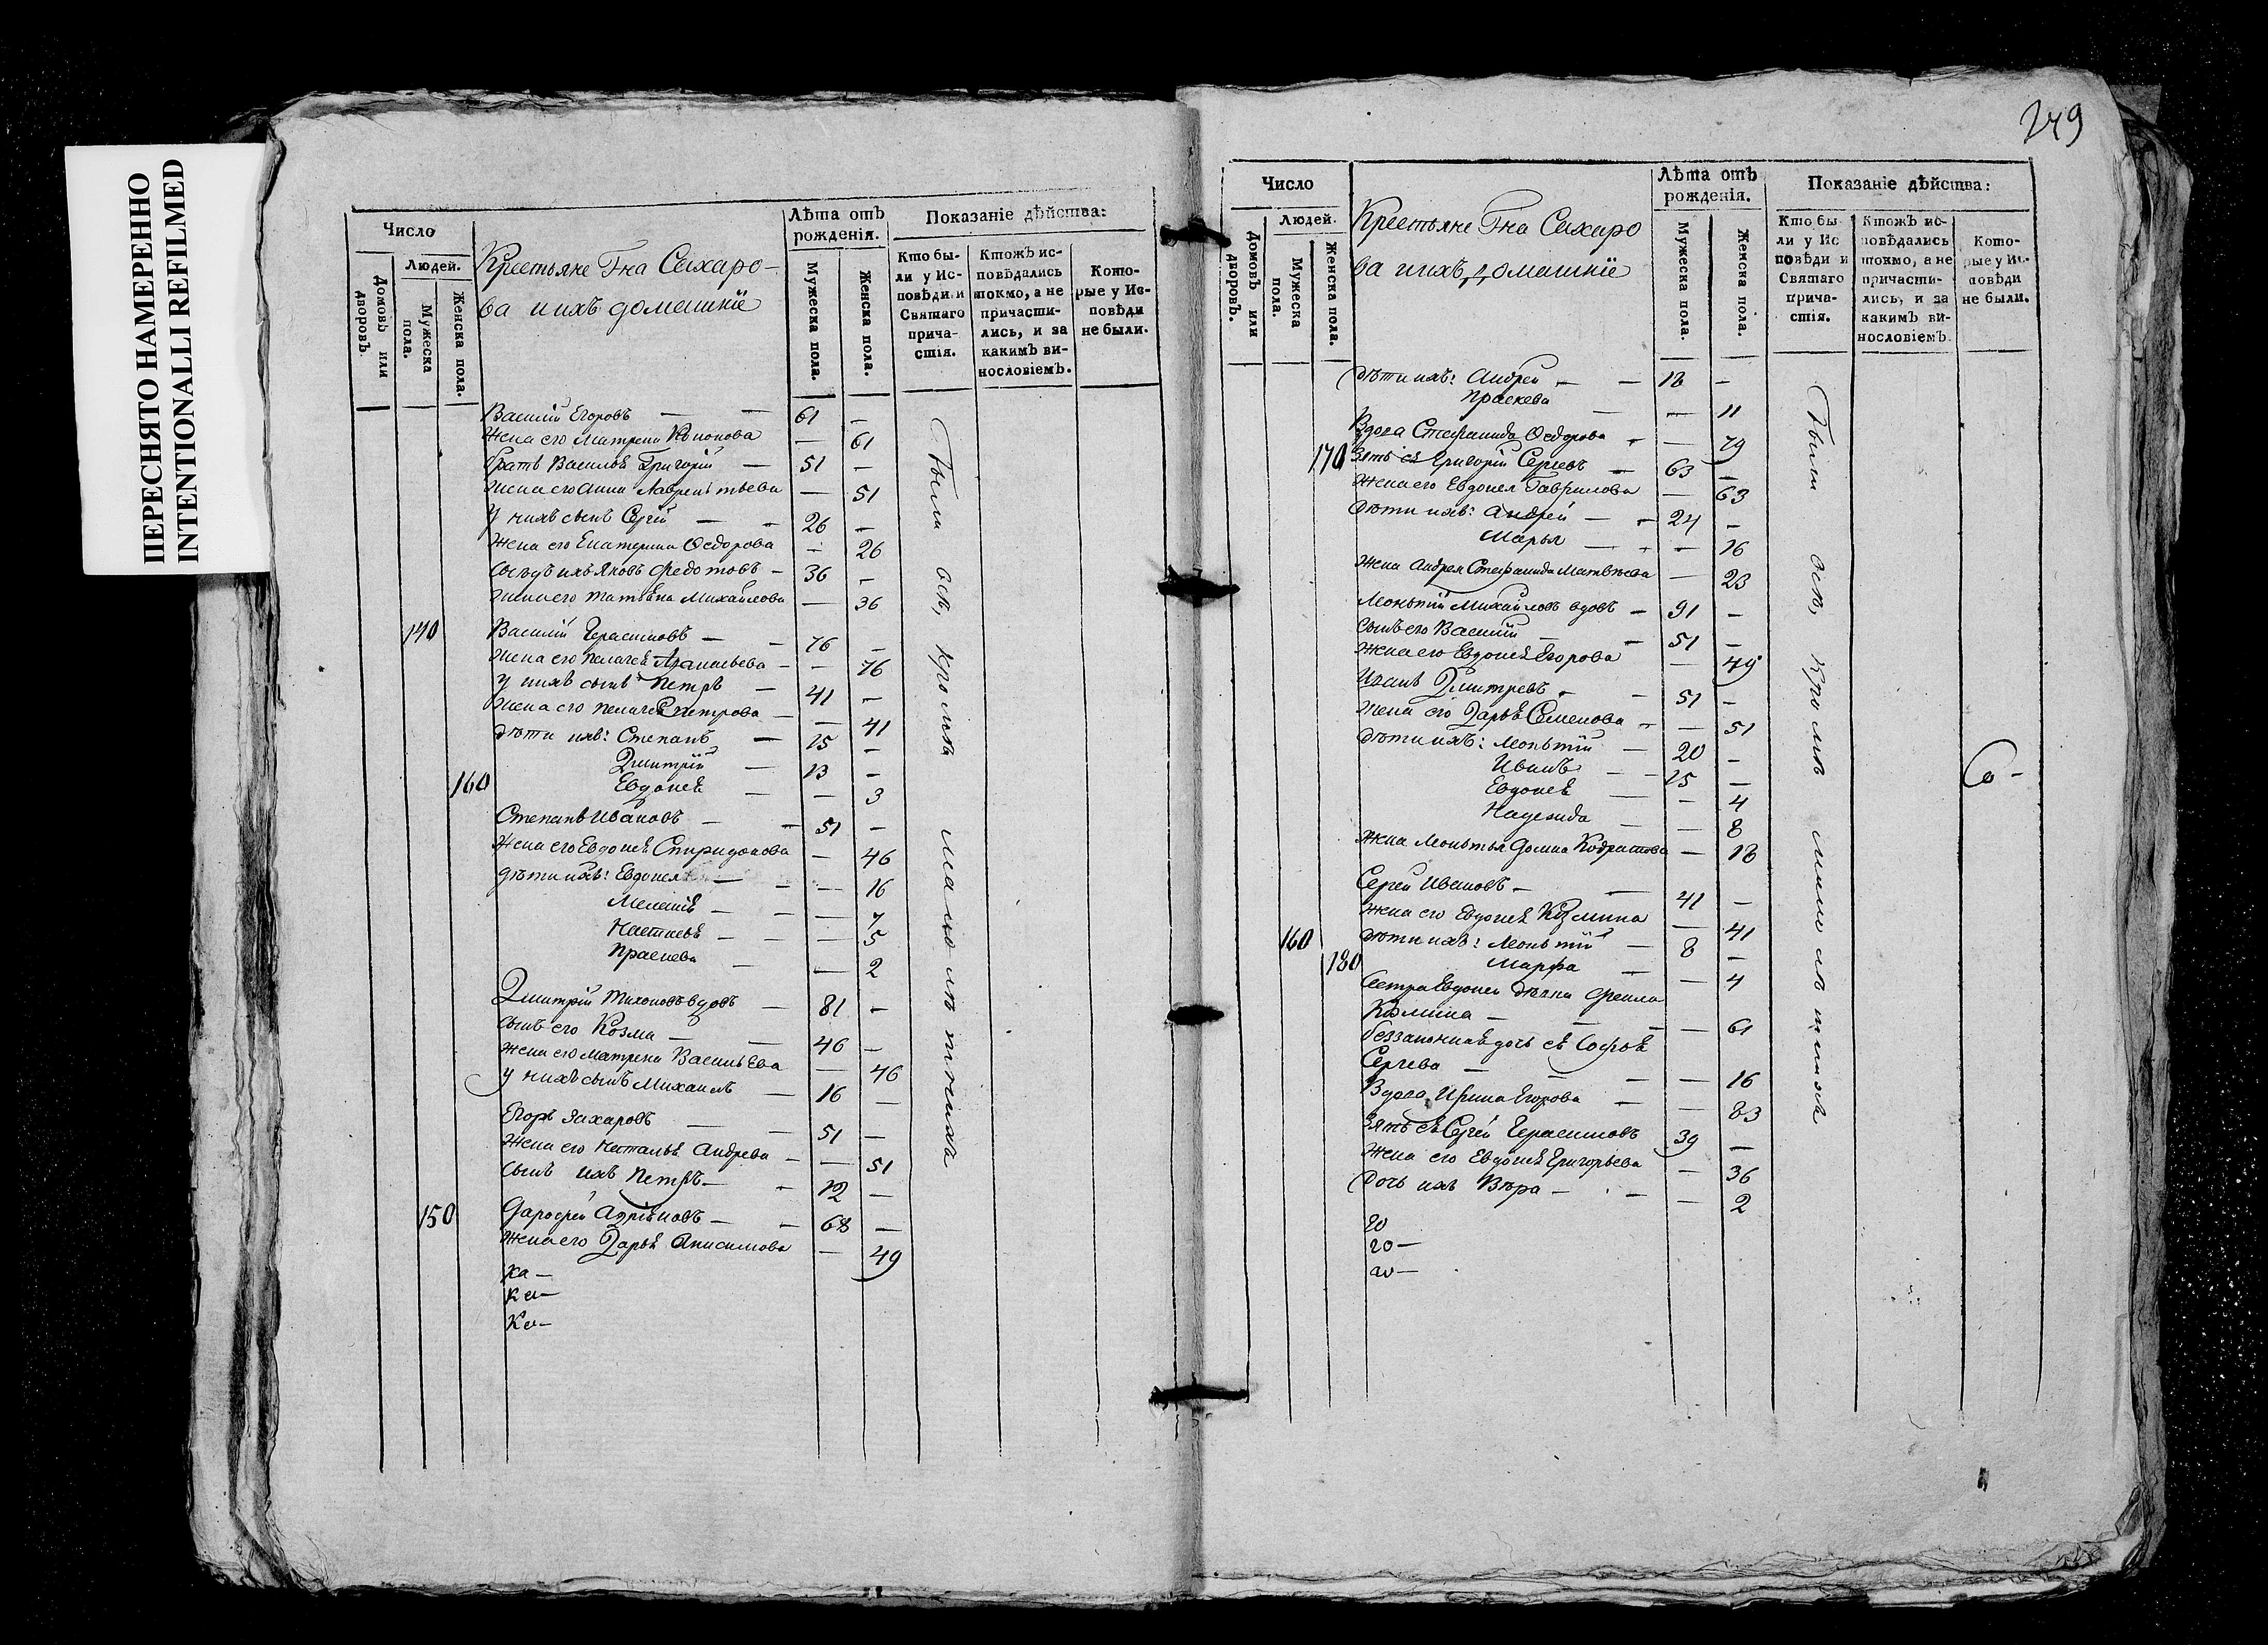 ПЕРЕСНЯТО НАМЕРЕННО
INTENTIONALLI REFILMED
Число
Людей.
Домовъ или дворовъ.
Мужеска пола.
Женска пола.
Крестьяне Гна Сахаро-
ва и ихъ домашнiе
Лѣта отъ рожденiя.
Мужеска пола.
Женска пола.
Показанiе дѣйства:
Кто бы-
ли у Ис-
повѣди и
Святаго
прича-
стiя.
Ктожъ ис-
повѣдались
токмо, а не
причасти-
лись, и за
какимъ ви-
нословiемъ.
Кото-
рые у Ис-
повѣди
не были.
Василiй Егоровъ — — 61 —
Жена его Матрена — 61
братъ Василiя Григорiй — 51 —
Жена его Анна Лаврентьева — 51
У нихъ сынъ Сергiй — — 26 —
Жена его Екатерина Ѳедорова — 26
Сосѣдъ ихъ Яковъ Федотовъ — 36 —
Жена его Татьяна Михайлова — 36
140 Василiй Герасимовъ — — 76 —
Жена его Пелагея Афанасьева — — 76
У нихъ сынъ Петръ — 41 —
Жена его Пелагея Петрова — — 41
дѣти ихъ: Степанъ — 15 —
Дмитрiй — 13 —
160 Евдокея — — 3
Степанъ Ивановъ — — 51 —
Жена его Евдокея Спиридонова — 46
дѣти ихъ: Евдокея — — — 16
Меланiя — — — 7
Настасья — — — 5
Праскева — — 2
Дмитрiй Тихоновъ вдовъ — 81 —
Сынъ его Козма — — 46 —
Жена его Матрена Васильева — 46
У нихъ сынъ Михаилъ — 16 —
Егоръ Захаровъ — — 51 —
Жена его Наталья Андрева — — 51
Сынъ ихъ Петръ — — 12 —
150 Дорофей — — 68 —
Жена его Дарья Анисимова — 49
ка —
ка —
ка —
Были всѣ, кромѣ малолѣтнихъ
249
Число
Людей.
Домовъ или дворовъ.
Мужеска пола.
Женска пола.
Крестьяне Гна Сахаро
ва и ихъ домашнiе
Лѣта отъ рожденiя.
Мужеска пола.
Женска пола.
Показанiе дѣйства:
Кто бы
ли у Ис
повѣди и
Святаго
прича-
стiя.
Ктожъ ис-
повѣдались
токмо, а не
причасти-
лись, и за
какимъ ви-
нословiемъ.
Кото-
рые у Ис-
повѣди
не были.
Дѣти ихъ: Андрей — — 18 —
Праскева — — 11
Вдова Стефанида Ѳедорова — — 79
170 Зять ея Григорiй Сергевъ — 63 —
Жена его Евдокея Гаврилова — 63
Дѣти ихъ: Андрей — — 24 —
Марья — — — 16
Жена Андрея Стефанида Матвѣева — 23
Леонтiй Михайловъ вдовъ — 91 —
Сынъ его Василiй — — 51 —
Жена его Евдокея Егорова — 49
Иванъ Дмитревъ — — 51 —
Жена его Дарья Семенова — — 51
Дѣти ихъ: Леонтiй — 20 —
Иванъ — — 15 —
Евдокея — — 4
Надежда — — 8
Жена Леонтья Домна — 18
Сергей Ивановъ — — 41 —
Жена его Евдокея Козмина — 41
160 Дѣти ихъ: Леонтiй — 8 —
180 Марфа — — 4
Сестра Евдокеи дѣвка Фекла
Козмина — — — — 61
беззаконная дочь ея Софья
Сергева — — — — 16
Вдова Ирина Егорова — — 83
Зять ея Сергей Герасимовъ 39 —
Жена его Евдокея Григорьева — 36
Дочь ихъ Вѣра — — — 2
го
го —
го —
Были всѣ, кромѣ